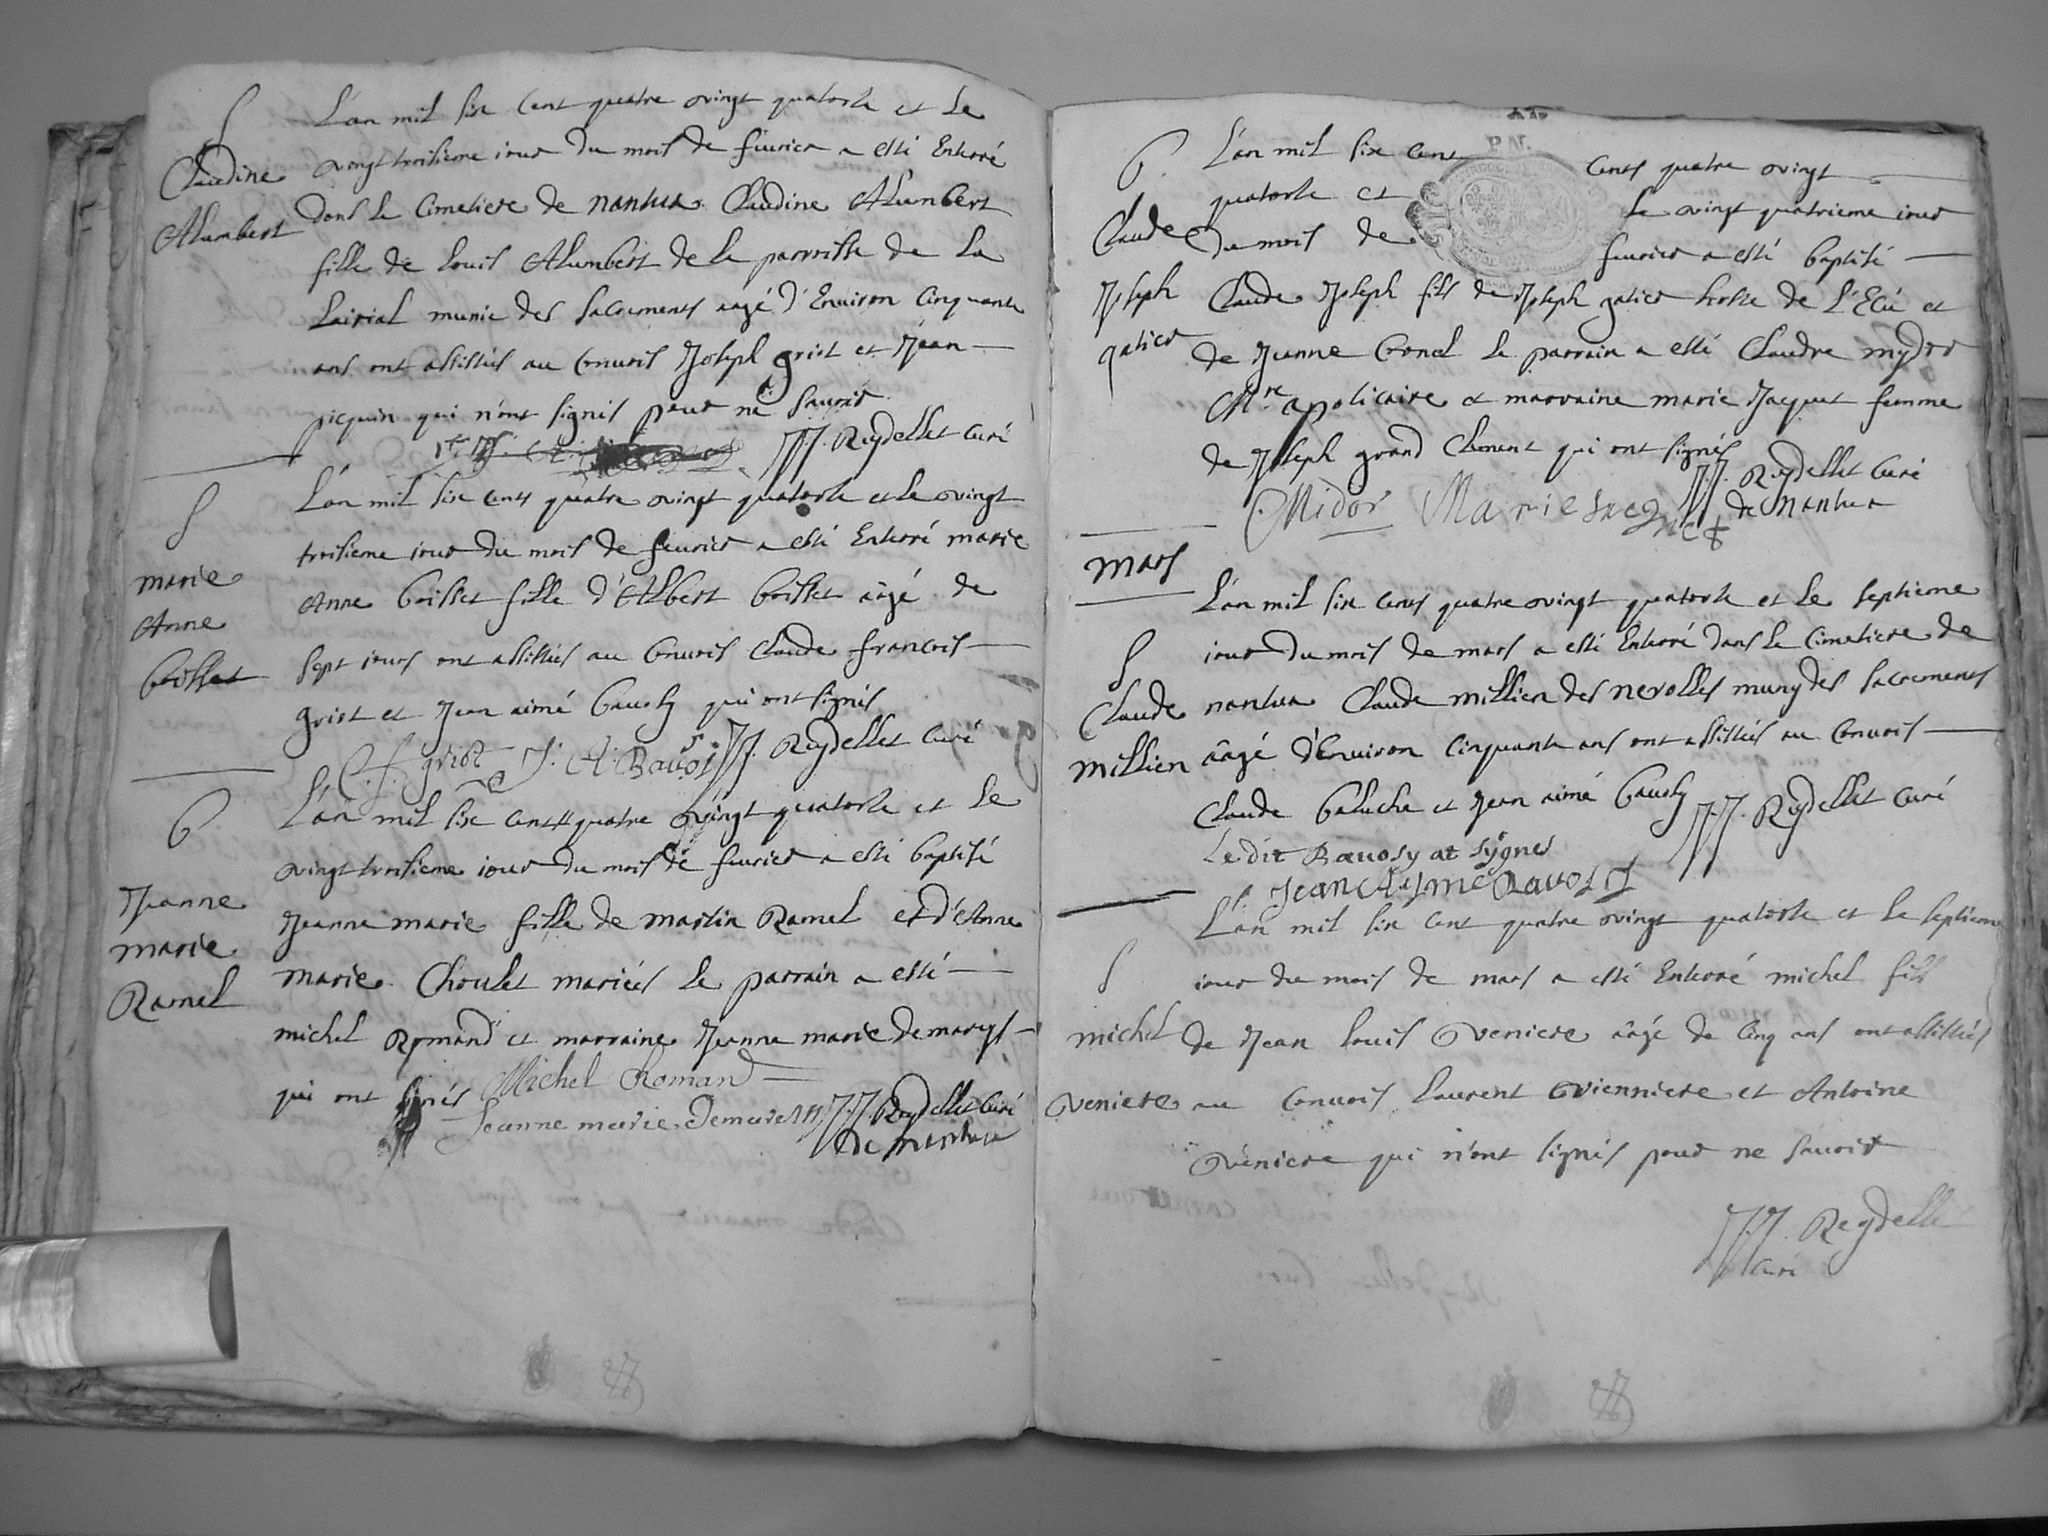 S
Claudine
Alumbert
L'an mil six cent quatre vingt quatorze et le
vingt troisieme iour du mois de feurier a esté Enterré
dans le Cimetiere de nantua Claudine Alumbert
fille de Louis Alumbert de la parroisse de La
munie des Sacrements aagé d'Enuiron Cinquante
ans ont assistés au Conuois Joseph griot et Jean
picquin qui n'ont signés pour ne sauoir
JJ. Reydellet Curé
S
marie
Anne
boisset
L'an mil six cents quatre vingt quatorze et le vingt
troisieme iour du mois de feurier a esté Enterré marie
Anne boisset fille d'Albert boisset aagé de
sept iours ont assistés au Conuois Claude francois
griot et Jean aimé bauosy qui ont signés
C. f. griot J. A. Bauosy JJ. Reydellet Curé
b
Jeanne
marie
Ramel
L'an mil six cents quatre vingt quatorze et le
vingt troisieme iour du mois de feurier a esté baptisé
Jeanne marie fille de martin Ramel et d'Anne
marie Choulet mariés le parrain a esté
michel Romand et marraine Jeanne marie demarys
qui ont signés Michel Roman
Jeanne marie Demare JJ. Reydellet Curé
de nantua
b.
Claude
Joseph
gatier
L'an mil six cent cents quatre vingt
quatorze et le vingt quatrieme iour
du mois de feurier a esté baptisé
Claude Joseph fils de Joseph gatier hoste de L'Ecu et
de Jeanne bonel le parrain a esté Claudre mydor
Mre apoticaire et marraine marie Jacquet femme
de Joseph grand Clement qui ont signés
C. Midor Marie Jacquet JJ. Reydellet Curé
de Nantua
mars
S
Claude
millien
L'an mil six cents quatre vingt quatorze et le septieme
iour du mois de mars a esté Enterré dans le Cimetiere de
nantua Claude millien des nerolles muny des sacrements
aagé d'Enuiron Cinquante ans ont assistés au Conuois
Claude baluche et Jean aimé bauosy JJ. Reydellet Curé
Ledit Bauosy at sygnes
Jean Aymé Bauosy
S
michel
veniere
L'an mil six cent quatre vingt quatorze et le septieme
iour du mois de mars a esté Enterré michel fils
de Jean Louis veniere aagé de Cinq ans ont assistés
au Conuois Laurent vienniere et Antoine
veniere qui n'ont signés pour ne sauoir
JJ. Reydelle
Curé